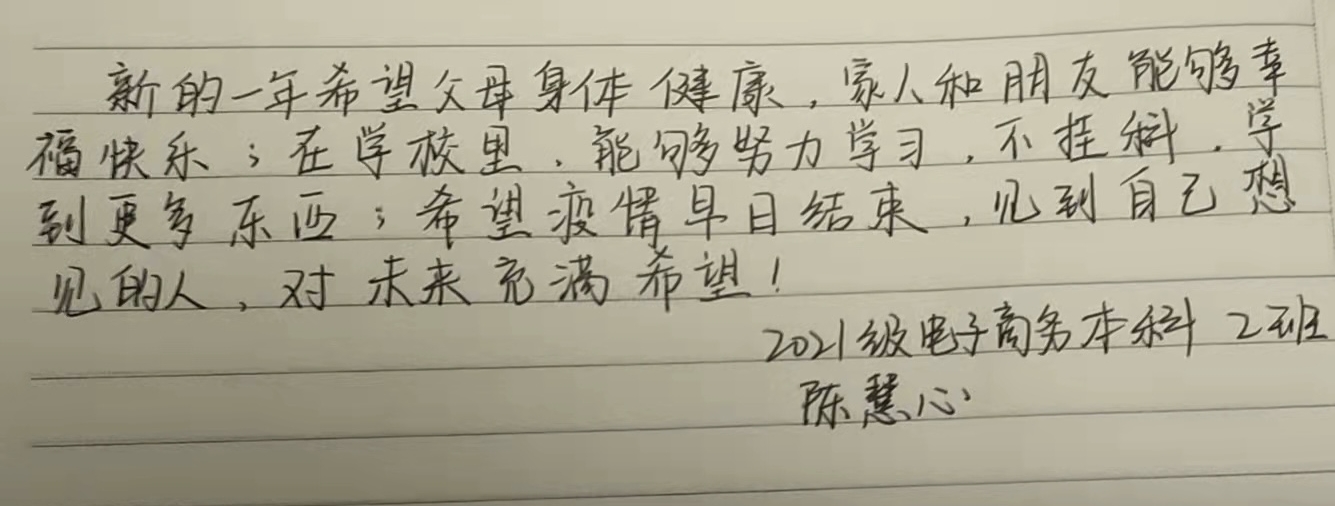 新的一年希望父母身体健康，家人和朋友能够幸
福快乐；在学校里，能够努力学习，不挂科，学
到更多东西；希望疫情早日结束，见到自己想
见的人，对未来充满希望！
2021级电子商务本科2班
陈慧心